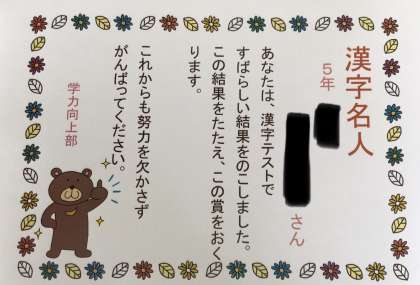 漢字名人
5年
さん
あなたは、漢字テストで
すばらしい結果をのこしました。
この結果をたたえ、この賞をおく
ります。
これからも努力を欠かさず
がんばってください。
学力向上部